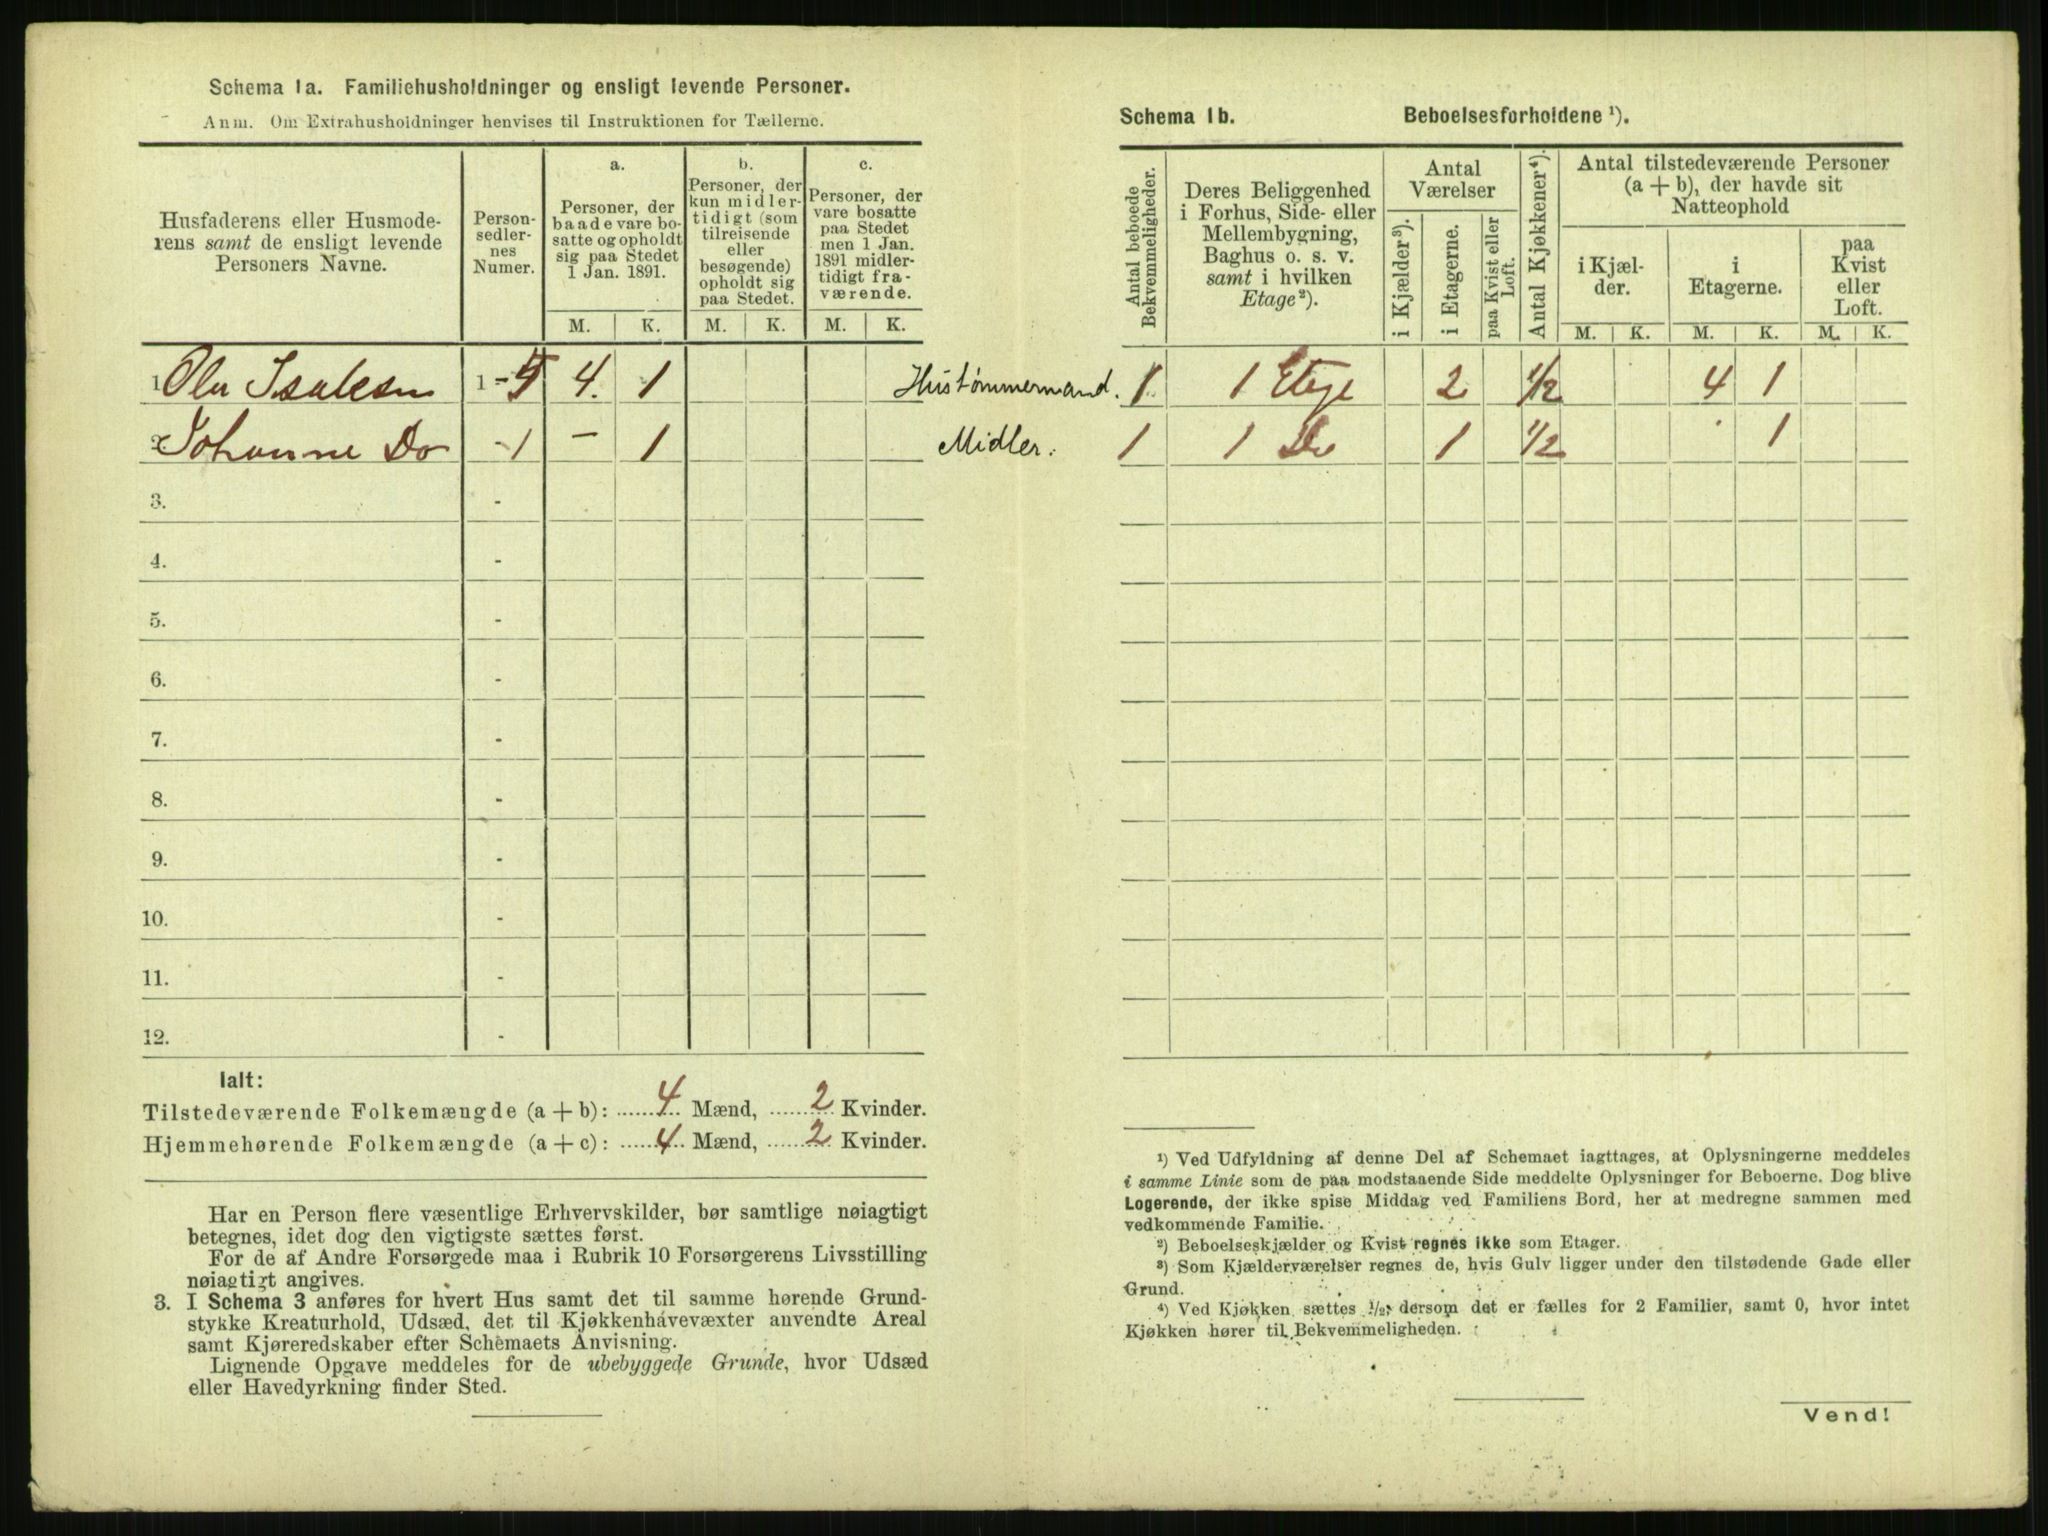 Schema 1a. Familiehusholdninger og ensligt levende Personer.
Anm. Om Extrahusholdninger henvises til Instruktionen for Tællerne.
Husfaderens eller Husmode-
rens samt de ensligt levende
Personers Navne.
Person-
sedler-
nes
Numer.
a.
Personer, der
baade vare bo-
satte og opholdt
sig paa Stedet
1 Jan. 1891.
b.
Personer, der
kun midler-
tidigt (som
tilreisende
eller
besøgende)
opholdt sig
paa Stedet.
c.
Personer, der
vare bosatte
paa Stedet
men 1 Jan.
1891 midler-
tidigt fra-
værende.
M. K. M. K. M. K.
1. Ola Isaksen 1 - 5 4. 1
2. Johanne Do - 1 - 1
3. -
4. -
5. -
6. -
7. -
8. -
9. -
10. -
11. -
12. -
Ialt:
Tilstedeværende Folkemængde (a + b): 4 Mænd, 2 Kvinder.
Hjemmehørende Folkemængde (a + c): 4 Mænd, 2 Kvinder.
Har en Person flere væsentlige Erhvervskilder, bør samtlige nøiagtigt
betegnes, idet dog den vigtigste sættes først.
For de af Andre Forsørgede maa i Rubrik 10 Forsørgerens Livsstilling
nøiagtigt angives.
3. I Schema 3 anføres for hvert Hus samt det til samme hørende Grund-
stykke Kreaturhold, Udsæd, det til Kjøkkenhavevæxter anvendte Areal
samt Kjøreredskaber efter Schemaets Anvisning.
Lignende Opgave meddeles for de ubebyggede Grunde, hvor Udsæd
eller Havedyrkning finder Sted.
Schema 1b. Beboelsesforholdene ¹).
Antal beboede
Bekvemmeligheder.
Deres Beliggenhed
i Forhus, Side- eller
Mellembygning,
Baghus o. s. v.
samt i hvilken
Etage²).
Antal
Værelser
i Kjælder³).
i Etagerne.
paa Kvist eller
Loft.
Antal Kjøkkener⁴).
Antal tilstedeværende Personer
(a + b), der havde sit
Natteophold
i Kjæl-
der.
i
Etagerne.
paa
Kvist
eller
Loft.
M. K. M. K. M. K.
Hustømmermand. 1 1 Etage 2 1/2 4 1
Midler. 1 1 Do 1 1/2 1
¹) Ved Udfyldning af denne Del af Schemaet iagttages, at Oplysningerne meddeles
i samme Linie som de paa modstaaende Side meddelte Oplysninger for Beboerne. Dog blive
Logerende, der ikke spise Middag ved Familiens Bord, her at medregne sammen med
vedkommende Familie.
²) Beboelseskjælder og Kvist regnes ikke som Etager.
³) Som Kjælderværelser regnes de, hvis Gulv ligger under den tilstødende Gade eller
Grund.
⁴) Ved Kjøkken sættes 1/2, dersom det er fælles for 2 Familier, samt 0, hvor intet
Kjøkken hører til Bekvemmeligheden.
Vend!